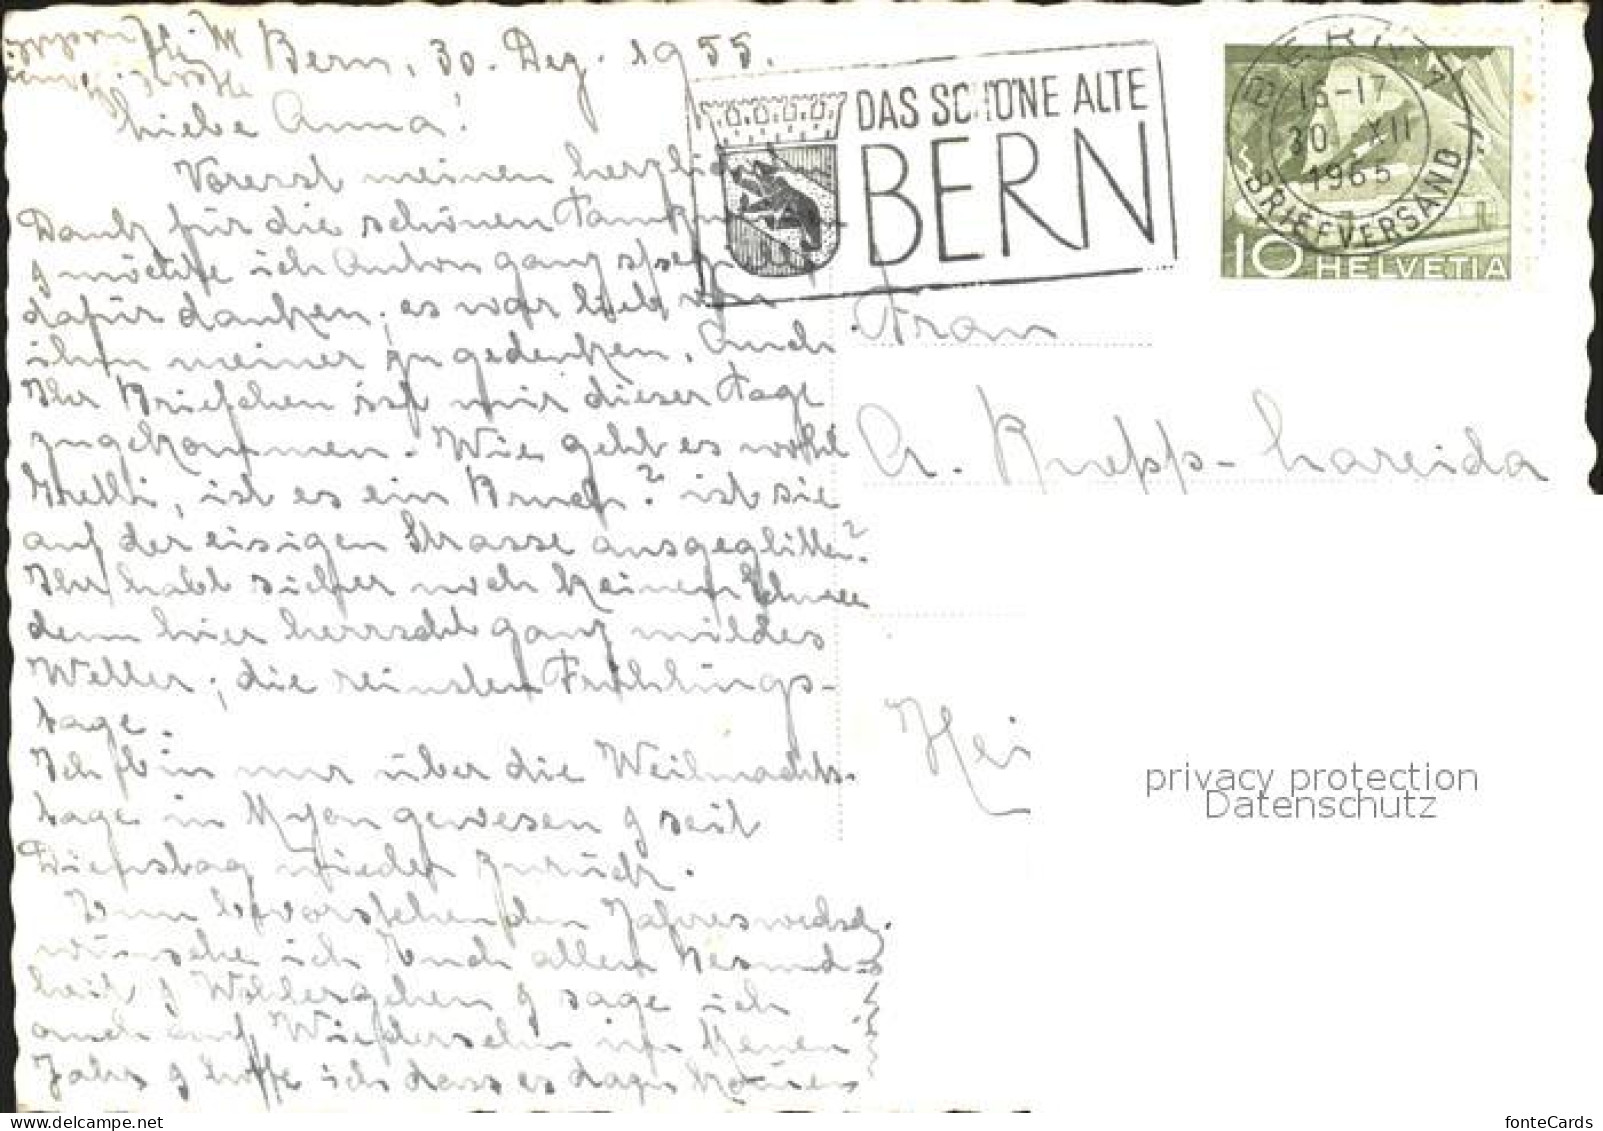 Bern, 30. Dez. 1955.
Liebe Anna!
Vorerst meinen herzlichen
Dank für die schönen
möchte ich Anton ganz speziell
dafür danken, es war lieb von
ihm meiner zu gedenken. Auch
Ihr Briefchen ist mir dieser Tage
zugekommen. Wie geht es wohl
Gretli, ist es ein Bruch? ist sie
auf der eisigen Strasse ausgeglitten?
Ihr habt sicher noch keinen Schnee
denn hier herrscht ganz mildes
Wetter, die reinsten Frühlings-
tage.
Ich bin nur über die Weihnachts-
tage in Nyon gewesen & seit
Dienstag wieder zurück.
Zum bevorstehenden Jahreswechsel
wünsche ich Euch allen Gesund-
heit & Wohlergehen & sage ich
auch auf Wiedersehn im Neuen
Jahr & hoffe ich dass es dazu
DAS SCHÖNE ALTE
BERN
BERN 1
16-17
30 XII
1955
BRIEFVERSAND
10 HELVETIA
Frau
A. Ruepp-Lareida
Hei
privacy protection
Datenschutz
fonteCards